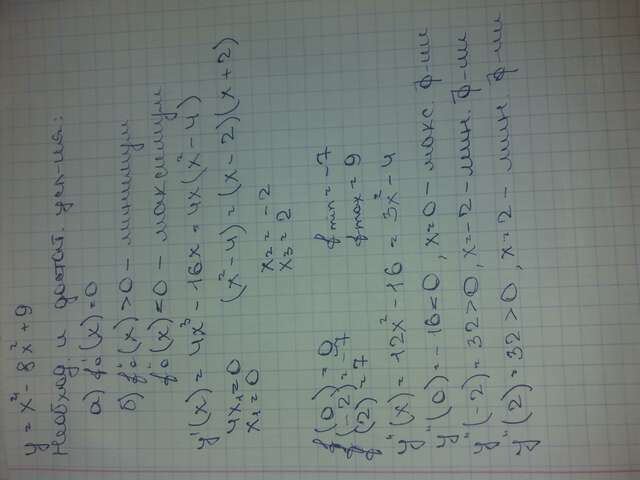 y = x⁴ - 8x² + 9
Необход. и достат. усл-ия:
а) f₀'(x) = 0
б) f₀''(x) > 0 - минимум
f₀''(x) < 0 - максимум
y'(x) = 4x³ - 16x = 4x(x² - 4)
4x₁ = 0 (x² - 4) = (x - 2)(x + 2)
x₁ = 0 x₂ = -2
x₃ = 2
f(0) = 9 fmin = -7
f(-2) = -7 fmax = 9
f(2) = 7
y''(x) = 12x² - 16 = 3x² - 4
y''(0) = -16 < 0, x = 0 - макс. ф-ии
y''(-2) = 32 > 0, x = -2 - мин. ф-ии
y''(2) = 32 > 0, x = 2 - мин. ф-ии